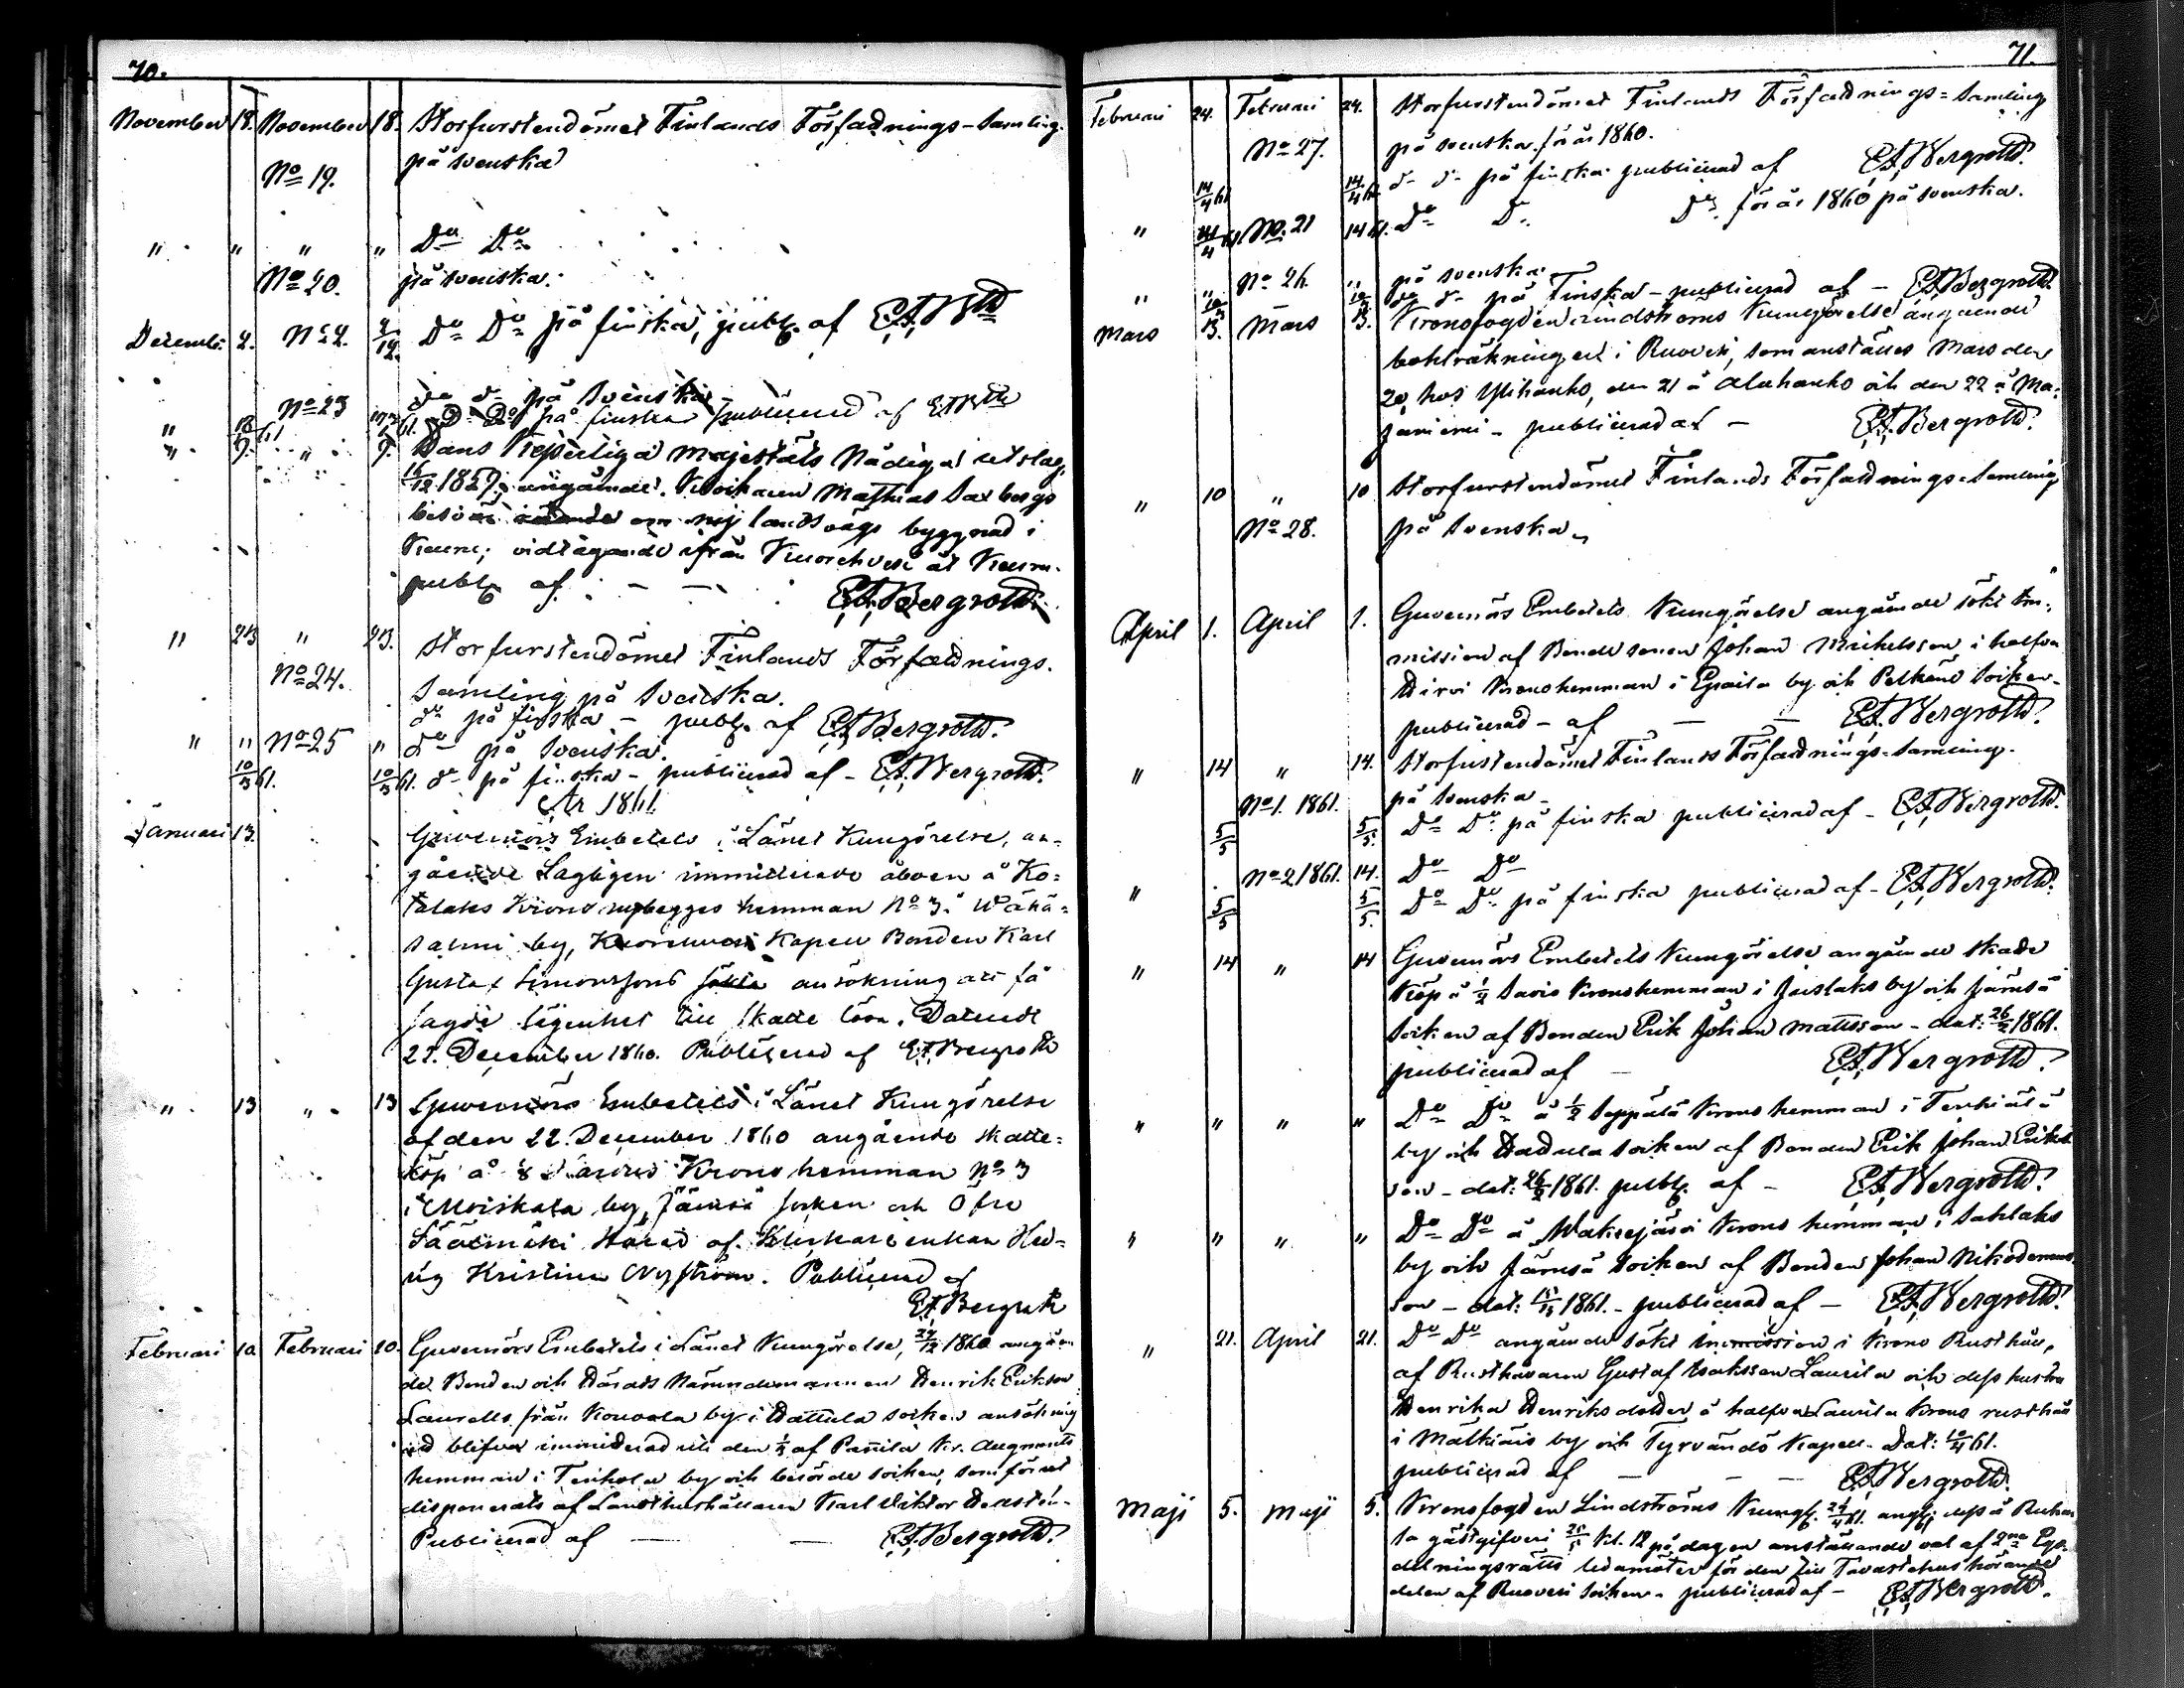 70.
November 18. November 18. Storfurstendömet Finlands Författnings-Samling.
No 19. på svenska
" " " " Do Do
No 20. på svenska.
Decemb. 2. No 2. 2/12. Do Do på finska, publ. af E.A.Bgth
No 23 do do på Svenska
Do Do på finska publicerad af E.A.Bgth
" 9. " 9. Hans Kejserliga Majestäts Nådiga utslag,
16/12 1859, angående Mathias Saxbergs
besvär om ny landsvägs byggnad i
Keuru, vidtagande ifrån Kuorehvesi åt Keuru.
publ. af. — — E.A.Bergroth.
" 23 " 23. Storfurstendömet Finlands Författnings-
No 24. Samling på Svenska.
do på finska — publ. af E.A.Bergroth.
" " No 25 " do på Svenska.
10/3 61. 10/3 61. do på finska — publicerad af — E.A.Bergroth.
År 1861.
Januari 13. Guvernörs Embetets i Länet Kungörelse, an-
gående Lagligen immitterade åboen å Ko-
talaks Krono nybygges hemman No 3 i Wähä-
salmi by, Kuorehvesi Kapell Bonden Karl
Gustaf Simonssons ansökning att få
sagde lägenhet till Skatte lösa. Daterad
22. December 1860. Publicerad af E.A.Bergroth
" 13 " 13 Guvernörs Embetets i Länet Kungörelse
af den 22. December 1860 angående skatte-
köp å Krono hemman No 3
i Moiskala by, Jämsä socken och Öfre
Sääksmäki Härad af Enkan Hed-
vig Kristina Nyström. Publicerad af
E.A.Bergroth
Februari 10. Februari 10. Guvernörs Embetets i Länet Kungörelse, 22/12 1860 angåen-
de Bonden och Härads Nämndemannen Henrik Erikson
Laurells från Kouvala by i Hattula socken ansökning
att blifva immitterad uti den 1/2 af Panila Kr. Augments
hemman i Tenhola by och berörde socken, som förut
disponerats af Landthushållaren Karl Viktor
Publicerad af — — E.A.Bergroth.
71.
Februari 24. Februari 24. Storfurstendömet Finlands Författnings-Samling
No 27. på svenska för år 1860.
14/4 61 14/4 61 do do på finska publicerad af E.A.Bergroth.
" 14/4 61 No. 21 14 61. Do Do Do för år 1860 på svenska.
" " No 26. " på svenska.
10/3 10/3 do do på Finska — publicerad af — E.A.Bergroth.
Mars 13. Mars 13. Kronofogden Lindströms Kungörelse angående
i Ruovesi, som anställes Mars den
20 hos Ylihanko, den 21 å Alahanko och den 22 å Ma-
janiemi — publicerad af — E.A.Bergroth.
" 10 " 10 Storfurstendömet Finlands Författnings-Samling
No 28. på Svenska.
April 1. April 1. Guvernörs Embetets Kungörelse angående sökt Im-
mission af Bonde sonen Johan Mikelsson i halfva
Hirvi Kronohemman i Epaila by och Pelkäne Socken —
publicerad — af — — E.A.Bergroth.
" 14 " 14. Storfurstendömet Finlands Författnings-Samling.
No 1. 1861. på Svenska —
5/5 5/5. Do Do på finska publicerad af — E.A.Bergroth.
" No 2 1861. 14. Do Do
5/5 5/5. Do Do på finska publicerad af — E.A.Bergroth.
" 14 " 14 Guvernörs Embetets Kungörelse angående skatte
köp å 1/2 Savio Kronohemman i Juslaks by och Jämsä
socken af Bonden Erik Johan Mattsson — dat: 26/2 1861.
publicerad af — E.A.Bergroth.
" " " " Do Do å 1/2 Seppälä Krono hemman i Tenhiälä
by och Hattula socken af Bonden Erik Johan Eriks-
son — dat: 26/2 1861. publ. af — E.A.Bergroth.
" " " " Do Do å Waherjärvi Krono hemman i Sahlaks
by och Jämsä Socken af Bonden Johan Nikodemus-
son — dat: 15/3 1861. — publicerad af — E.A.Bergroth.
" 21. April 21. Do Do angående sökt Immission i Krono Rusthåll,
af Rusthållaren Gustaf Isaksson Laurila och dess hustru
Henrika Henriksdotter å halfva Laurila Krono rusthåll
i Mälkiäis by och Tyrväntö Kapell. Dat: 10/4 61.
publicerad af — — — E.A.Bergroth.
Maji 5. Maji 5. Kronofogden Lindströms Kungf. 24/4 61. angående dess å Ruhala
gästgifveri 25/5 kl. 12 på dagen anställande val af 2ne Ego-
delningsrätts ledamöter för den till Tavastehus hörande
delen af Ruovesi Socken — publicerad af — E.A.Bergroth.